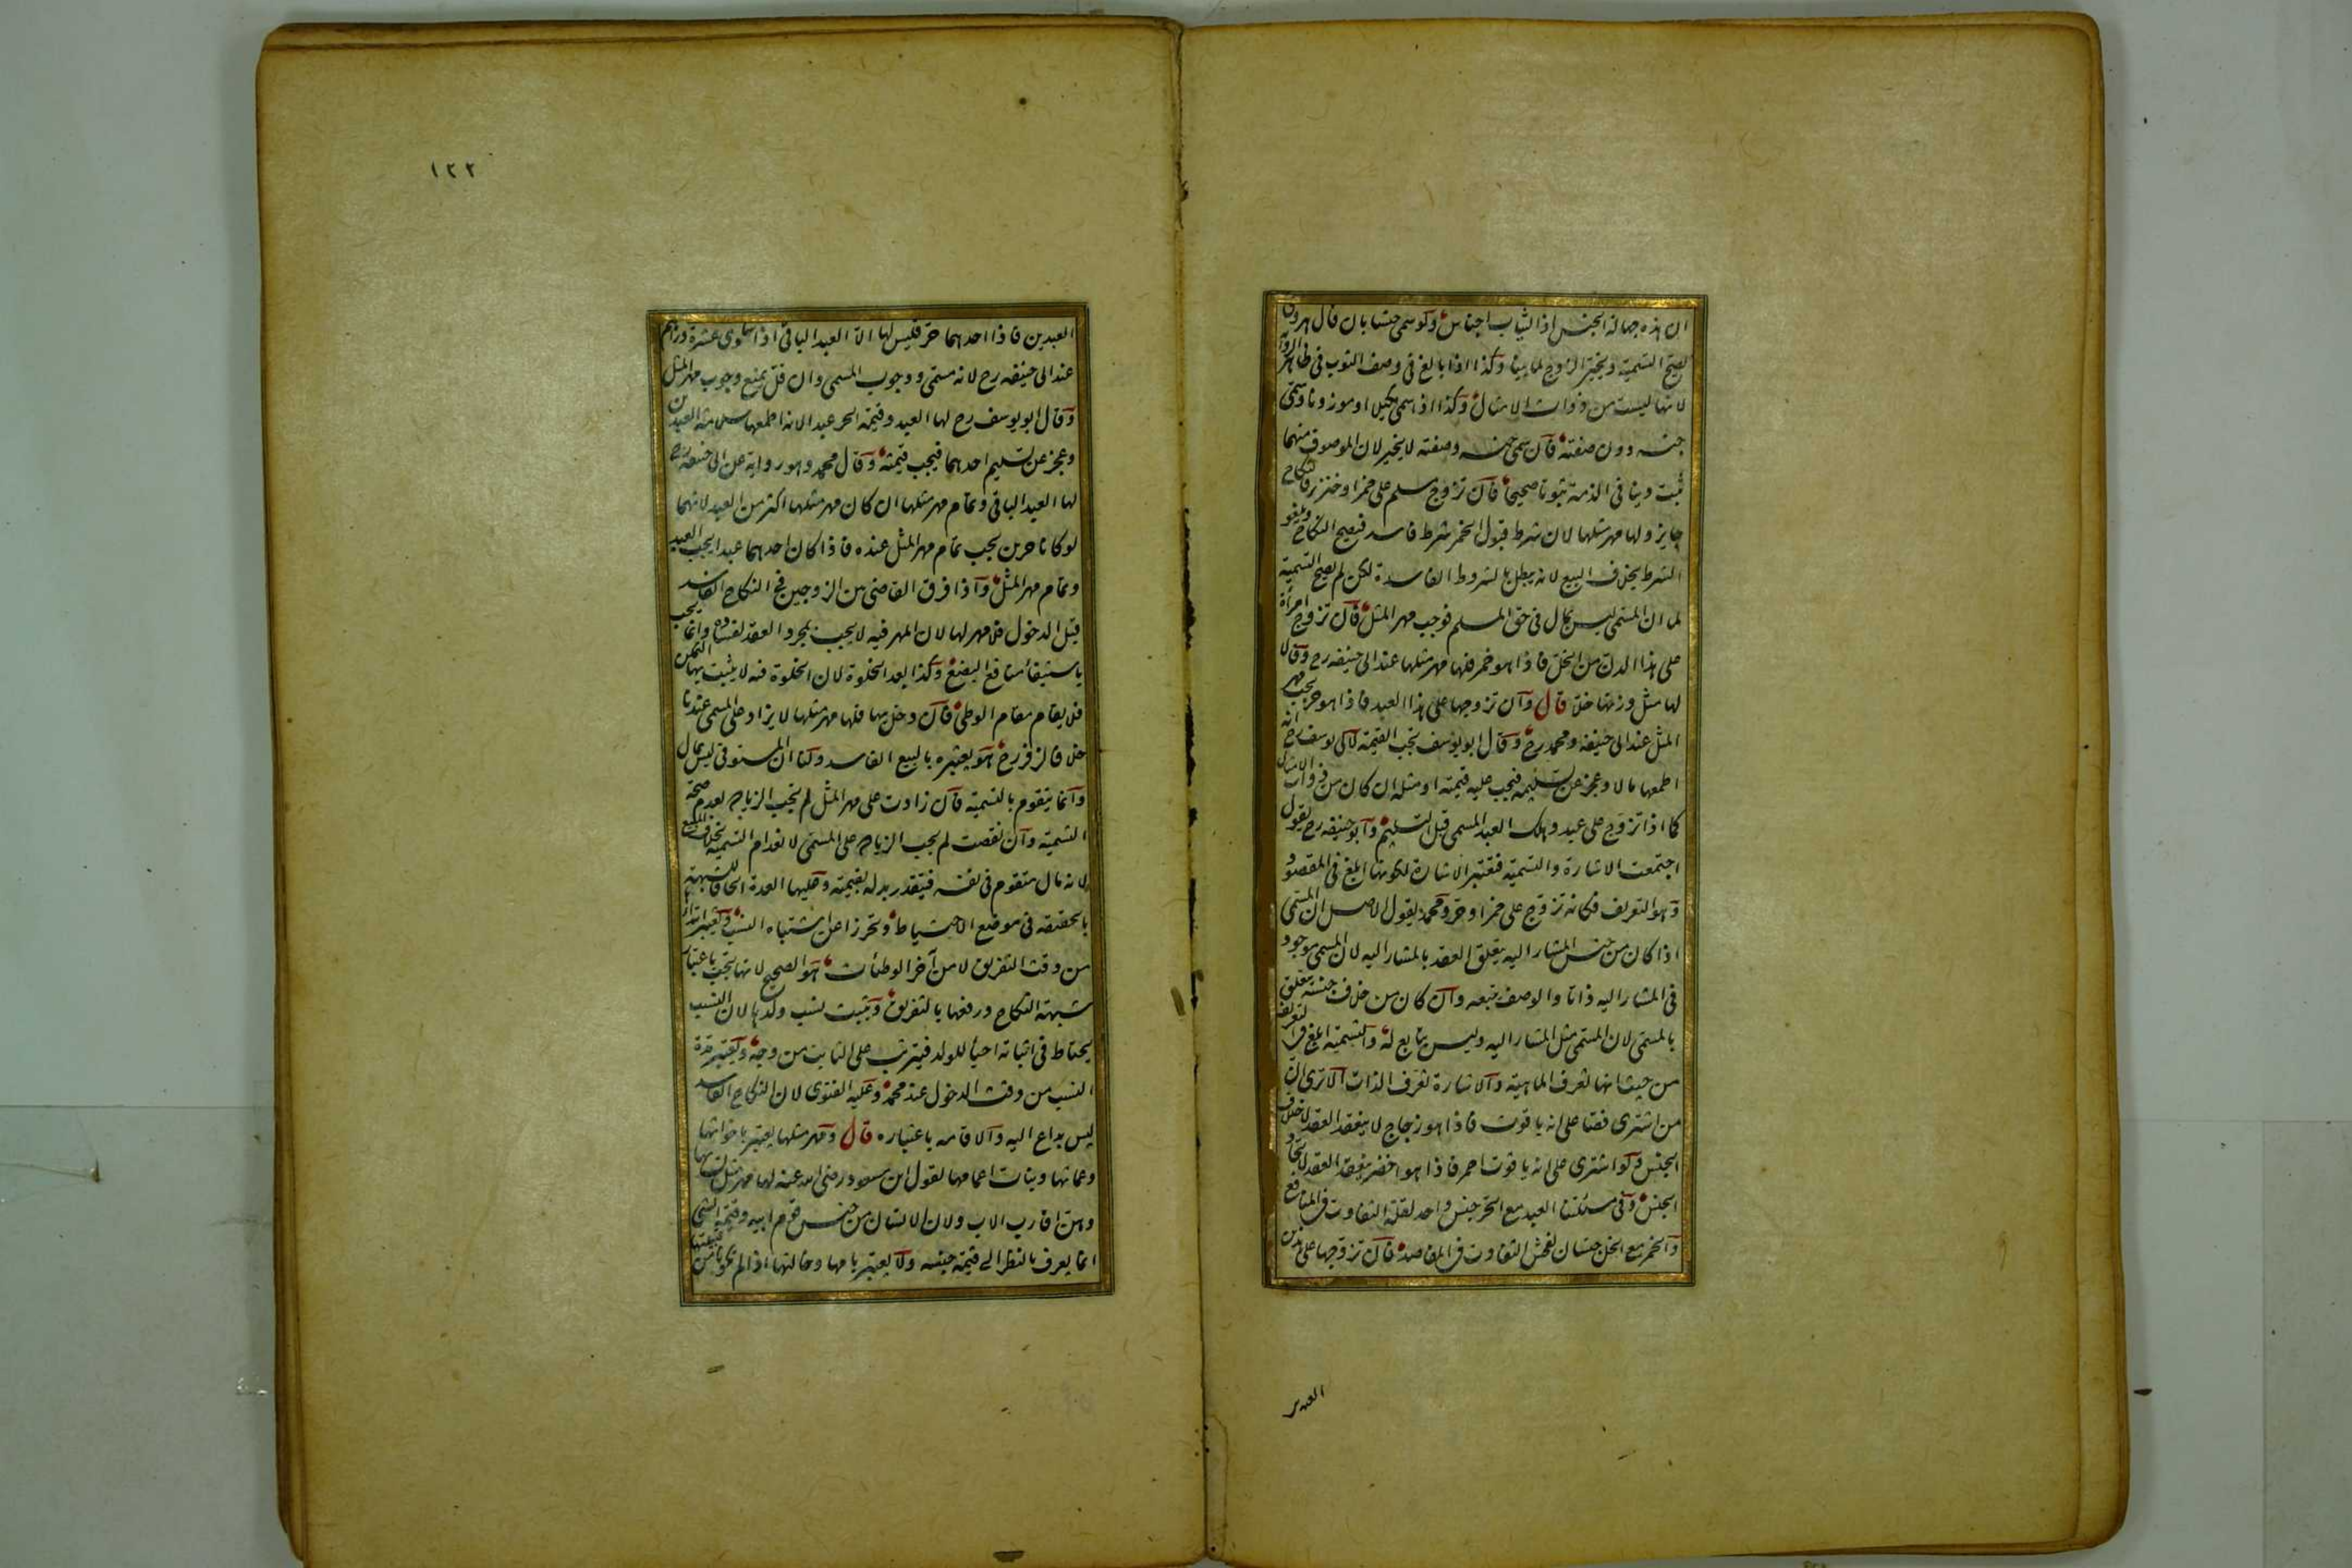 ان هذه جهالة الجنس اذ الثياب اجناس ولو سمى جنسا بان قال هروى
يصح التسمية ويخير الزوج لما بينا وكذا اذا بالغ فى وصف الثوب فى ظاهر الرواية
لانها ليست من ذوات الامثال وكذا اذا سمى مكيلا او موزونا وسمى
جنسه دون صفته فان سمى جنسه وصفته لا يخير لان الموصوف منهما
يثبت دينا فى الذمة ثبوتا صحيحا فان تزوج مسلم على خمر او خنزير فالنكاح
جايز ولها مهر مثلها لان شرط قبول الخمر شرط فاسد فيصح النكاح ويلغو
الشرط بخلاف البيع لانه يبطل بالشروط الفاسدة لكن لم يصح التسمية
لما ان المسمى ليس بمال فى حق المسلم فوجب مهر المثل فان تزوج امرأة
على هذا الدن من الخل فاذا هو خمر فلها مهر مثلها عند ابى حنيفه رح وقالا
لها مثل وزنها خلا قال وان تزوجها على هذا العبد فاذا هو حر يجب مهر
المثل عند ابى حنيفه ومحمد رح وقال ابو يوسف تجب القيمة لابى يوسف رح انه
اطمعها مالا وعجز عن تسليمه فيجب عليه قيمته او مثله ان كان من ذوات الامثال
كما اذا تزوج على عبد وهلك العبد المسمى قبل التسليم وابو حنيفه رح يقول
اجتمعت الاشارة والتسمية فتعتبر الاشارة لكونها ابلغ فى المقصود
وهو التعريف فكانه تزوج على خمر او حر ومحمد يقول الاصل ان المسمى
اذا كان من جنس المشار اليه يتعلق العقد بالمشار اليه لان المسمى موجود
فى المشار اليه ذاتا والوصف يتبعه وان كان من خلاف جنسه يتعلق
بالمسمى لان المسمى مثل المشار اليه وليس بتابع له والتسمية ابلغ فى التعريف
من حيث انها تعرف الماهية والاشارة تعرف الذات الا ترى ان
من اشترى فصا على انه ياقوت فاذا هو زجاج لا ينعقد العقد لاختلاف
الجنس ولو اشترى على انه ياقوت احمر فاذا هو اخضر ينعقد العقد لاتحاد
الجنس وفى مسئلتنا العبد مع الحر جنس واحد لقلة التفاوت فى المنافع
والخمر مع الخل جنسان لفحش التفاوت فى المقاصد فان تزوجها على هذين
العبدين
١٢٢
العبدين فاذا احدهما حر فليس لها الا العبد الباقى اذا ساوى عشرة دراهم
عند ابى حنيفه رح لانه مسمى ووجوب المسمى وان قل يمنع وجوب مهر المثل
وقال ابو يوسف رح لها العبد وقيمة الحر عبدا لانه اطمعها سلامة العبدين
وعجز عن تسليم احدهما فيجب قيمته وقال محمد وهو رواية عن ابى حنيفه رح
لها العبد الباقى وتمام مهر مثلها ان كان مهر مثلها اكثر من العبد لانهما
لو كانا حرين يجب تمام مهر المثل عنده فاذا كان احدهما عبدا يجب العبد
وتمام مهر المثل واذا فرق القاضى بين الزوجين فى النكاح الفاسد
قبل الدخول فلا مهر لها لان المهر فيه لا يجب بمجرد العقد لفساده وانما يجب
باستيفاء منافع البضع وكذا بعد الخلوة لان الخلوة فيه لا يثبت بها التمكن
فلا يقام مقام الوطى فان دخل بها فلها مهر مثلها لا يزاد على المسمى عندنا
خلافا لزفر رح هو يعتبره بالبيع الفاسد ولنا ان المستوفى ليس بمال
وانما يتقوم بالتسمية فان زادت على مهر المثل لم تجب الزيادة لعدم صحة
التسمية وان نقصت لم يجب الزيادة على المسمى لانعدام التسمية بخلاف البيع
لانه مال متقوم فى نفسه فيتقدر بدله بقيمته وعليها العدة الحاقا للشبهة
بالحقيقة فى موضع الاحتياط وتحرزا عن اشتباه النسب ويعتبر ابتداؤها
من وقت التفريق لا من آخر الوطئات هو الصحيح لانها تجب باعتبار
شبهة النكاح ورفعها بالتفريق ويثبت نسب ولدها لان النسب
يحتاط فى اثباته احياء للولد فيترتب على الثابت من وجه ويعتبر مدة
النسب من وقت الدخول عند محمد وعليه الفتوى لان النكاح الفاسد
ليس بداع اليه والاقامة باعتباره قال ومهر مثلها يعتبر باخواتها
وعماتها وبنات اعمامها لقول ابن مسعود رضى الله عنه لها مهر مثل نسائها
وهن اقارب الاب ولان الانسان من جنس قوم ابيه وقيمة الشى
انما يعرف بالنظر الى قيمة جنسه ولا يعتبر بامها وخالتها اذا لم تكونا من قبيلتها